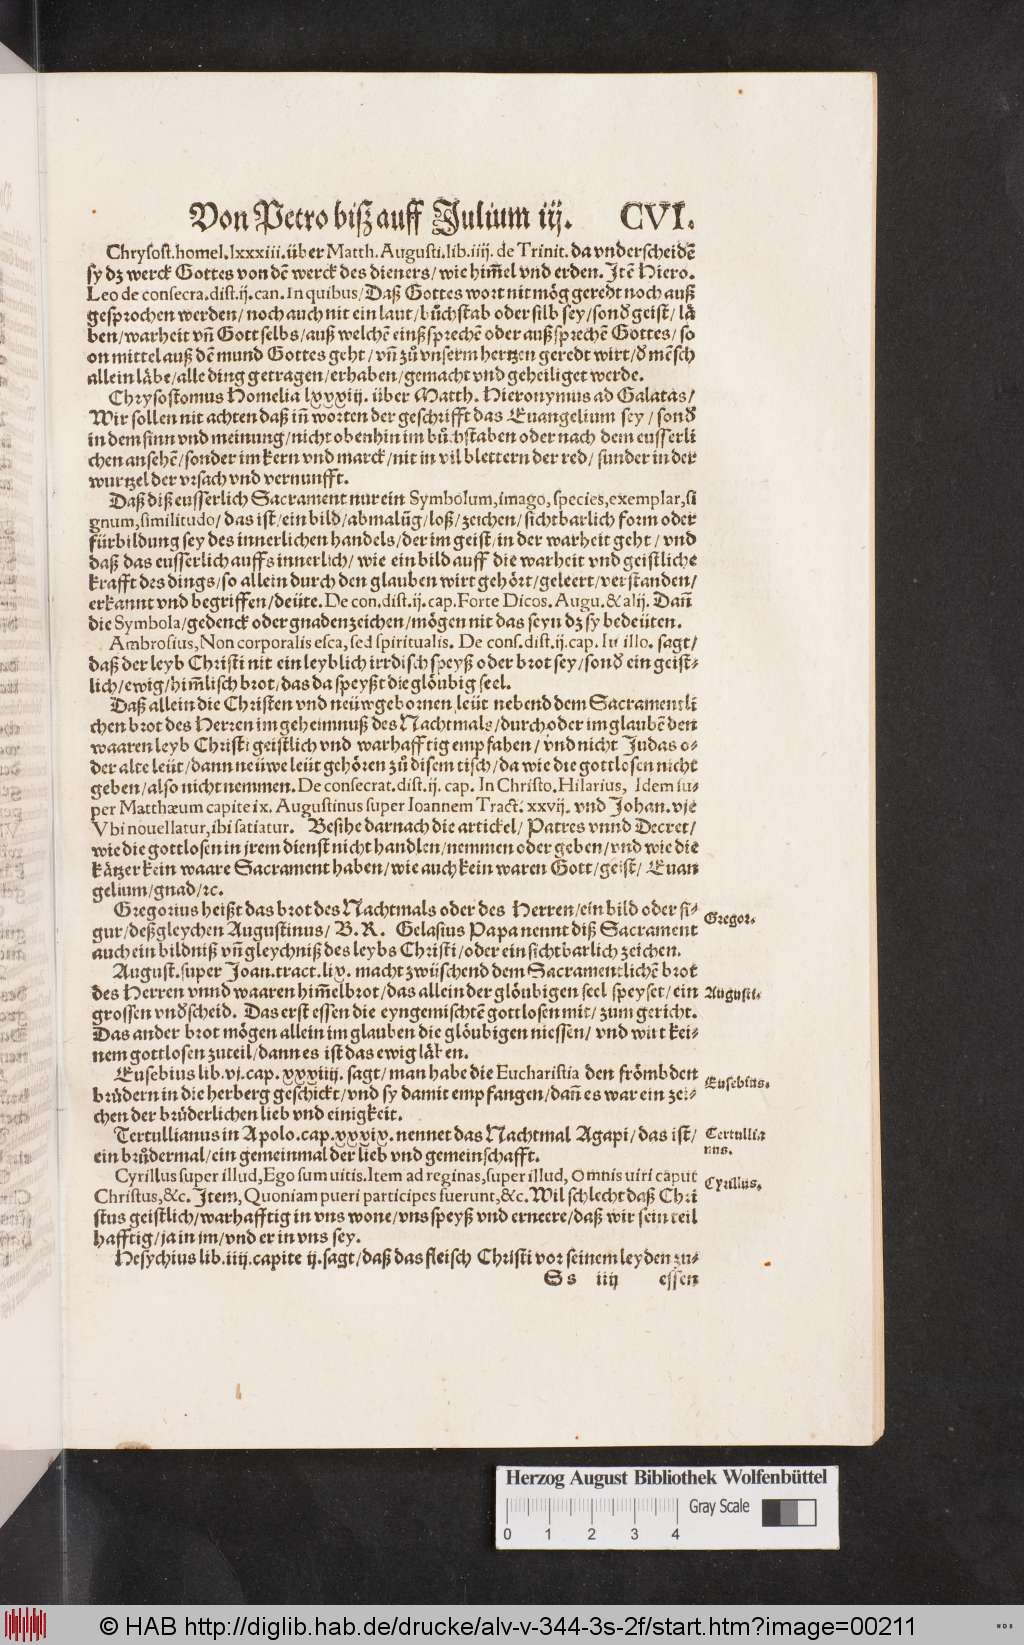 Von Petro biß auff Julium iij. CVI.
Chrysost.homel.lxxxiii.über Matth.Augusti.lib.iiij. de Trinit. da vnderscheidē
sy dz werck Gottes von dē werck des dieners/ wie him̄el vnd erden. Itē Hiero.
Leo de consecra.dist.ij.can.In quibus/ Daß Gottes wort nit mög geredt noch auß
gesprochen werden/ noch auch nit ein laut/ bůchstab oder silb sey/ sond̄ geist/ lä
ben/ warheit vn̄ Gott selbs/ auß welchē einß sprechē oder auß sprechē Gottes/ so
on mittel auß dē mund Gottes geht/ vn̄ zů vnserm hertzen geredt wirt/ d̄ mēsch
allein läbe/ alle ding getragen/ erhaben/ gemacht vnd geheiliget werde.
Chrysostomus Homelia lxxxiij. über Matth. Hieronymus ad Galatas/
Wir sollen nit achten daß in̄ worten der geschrifft das Euangelium sey/ sond̄
in dem sinn vnd meinung/ nicht obenhin im bůchstaben oder nach dem eusserli
chen ansehē/ sonder im kern vnd marck/ nit in vil blettern der red/ sunder in der
wurtzel der vrsach vnd vernunfft.
Daß diß eusserlich Sacrament nur ein Symbolum,imago,species,exemplar,si
gnum,similitudo/ das ist/ ein bild/ abmalūg/ loß/ zeichen/ sichtbarlich form oder
fürbildung sey des innerlichen handels/ der im geist/ in der warheit geht/ vnd
daß das eusserlich auffs innerlich/ wie ein bild auff die warheit vnd geistliche
krafft des dings/ so allein durch den glauben wirt gehört/ geleert/ verstanden/
erkannt vnd begriffen/ deüte. De con.dist.ij.cap.Forte Dicos.Augu.&alij. Dan̄
die Symbola/ gedenck oder gnadenzeichen/ mögen nit das seyn dz sy bedeüten.
Ambrosius,Non corporalis esca, sed spiritualis. De cons.dist.ij.cap.In illo. sagt/
daß der leyb Christi nit ein leyblich irrdisch speyß oder brot sey/ sond̄ ein geist-
lich/ ewig/ him̄lisch brot/ das da speyßt die glöubig seel.
Daß allein die Christen vnd neüwgebornen leüt nebend dem Sacramentli
chen brot des Herren im geheimnuß des Nachtmals/ durch oder im glaubē den
waaren leyb Christi geistlich vnd warhafftig empfahen/ vnd nicht Judas o-
der alte leüt/ dann neüwe leüt gehören zů disem tisch/ da wie die gottlosen nicht
geben/ also nicht nemmen. De consecrat.dist.ij. cap. In Christo.Hilarius, Idem su-
per Matthæum capite ix. Augustinus super Ioannem Tract. xxvij. vnd Johan. vje
Vbi nouellatur,ibi satiatur. Besihe darnach die artickel/ Patres vnnd Decret/
wie die gottlosen in jrem dienst nicht handlen/ nemmen oder geben/ vnd wie die
kätzer kein waare Sacrament haben/ wie auch kein waren Gott/ geist/ Euan
gelium/ gnad/ ꝛc.
Gregorius heißt das brot des Nachtmals oder des Herren/ ein bild oder fi-
gur/ deßgleychen Augustinus/ B.R. Gelasius Papa nennt diß Sacrament
auch ein bildniß vn̄ gleychniß des leybs Christi/ oder ein sichtbarlich zeichen.
Gregor.
August.super Joan.tract.lix. macht zwüschend dem Sacramentlichē brot
des Herren vnnd waaren him̄elbrot/ das allein der glöubigen seel speyset/ ein
grossen vnd̄scheid. Das erst essen die eyngemischtē gottlosen mit/ zum gericht.
Das ander brot mögen allein im glauben die glöubigen niessen/ vnd wirt kei-
nem gottlosen zuteil/ dann es ist das ewig läben.
Augusti.
Eusebius lib.vj.cap. xxxiiij. sagt/ man habe die Eucharistia den frömbden
brůdern in die herberg geschickt/ vnd sy damit empfangen/ dan̄ es war ein zei-
chen der brůderlichen lieb vnd einigkeit.
Eusebius.
Tertullianus in Apolo.cap.xxxix.nennet das Nachtmal Agapi/ das ist/
ein brůdermal/ ein gemeinmal der lieb vnd gemeinschafft.
Tertullia
nus.
Cyrillus super illud,Ego sum uitis.Item ad reginas,super illud, Omnis uiri caput
Christus,&c. Item, Quoniam pueri participes fuerunt,&c. Wil schlecht daß Chri
stus geistlich/ warhafftig in vns wone/ vns speyß vnd erneere/ daß wir sein teil
hafftig/ ja in im/ vnd er in vns sey.
Cyrillus.
Hesychius lib.iiij.capite ij.sagt/ daß das fleisch Christi vor seinem leyden zu-
Ss iiij essen
Herzog August Bibliothek Wolfenbüttel
Gray Scale
0 1 2 3 4
© HAB http://diglib.hab.de/drucke/alv-v-344-3s-2f/start.htm?image=00211